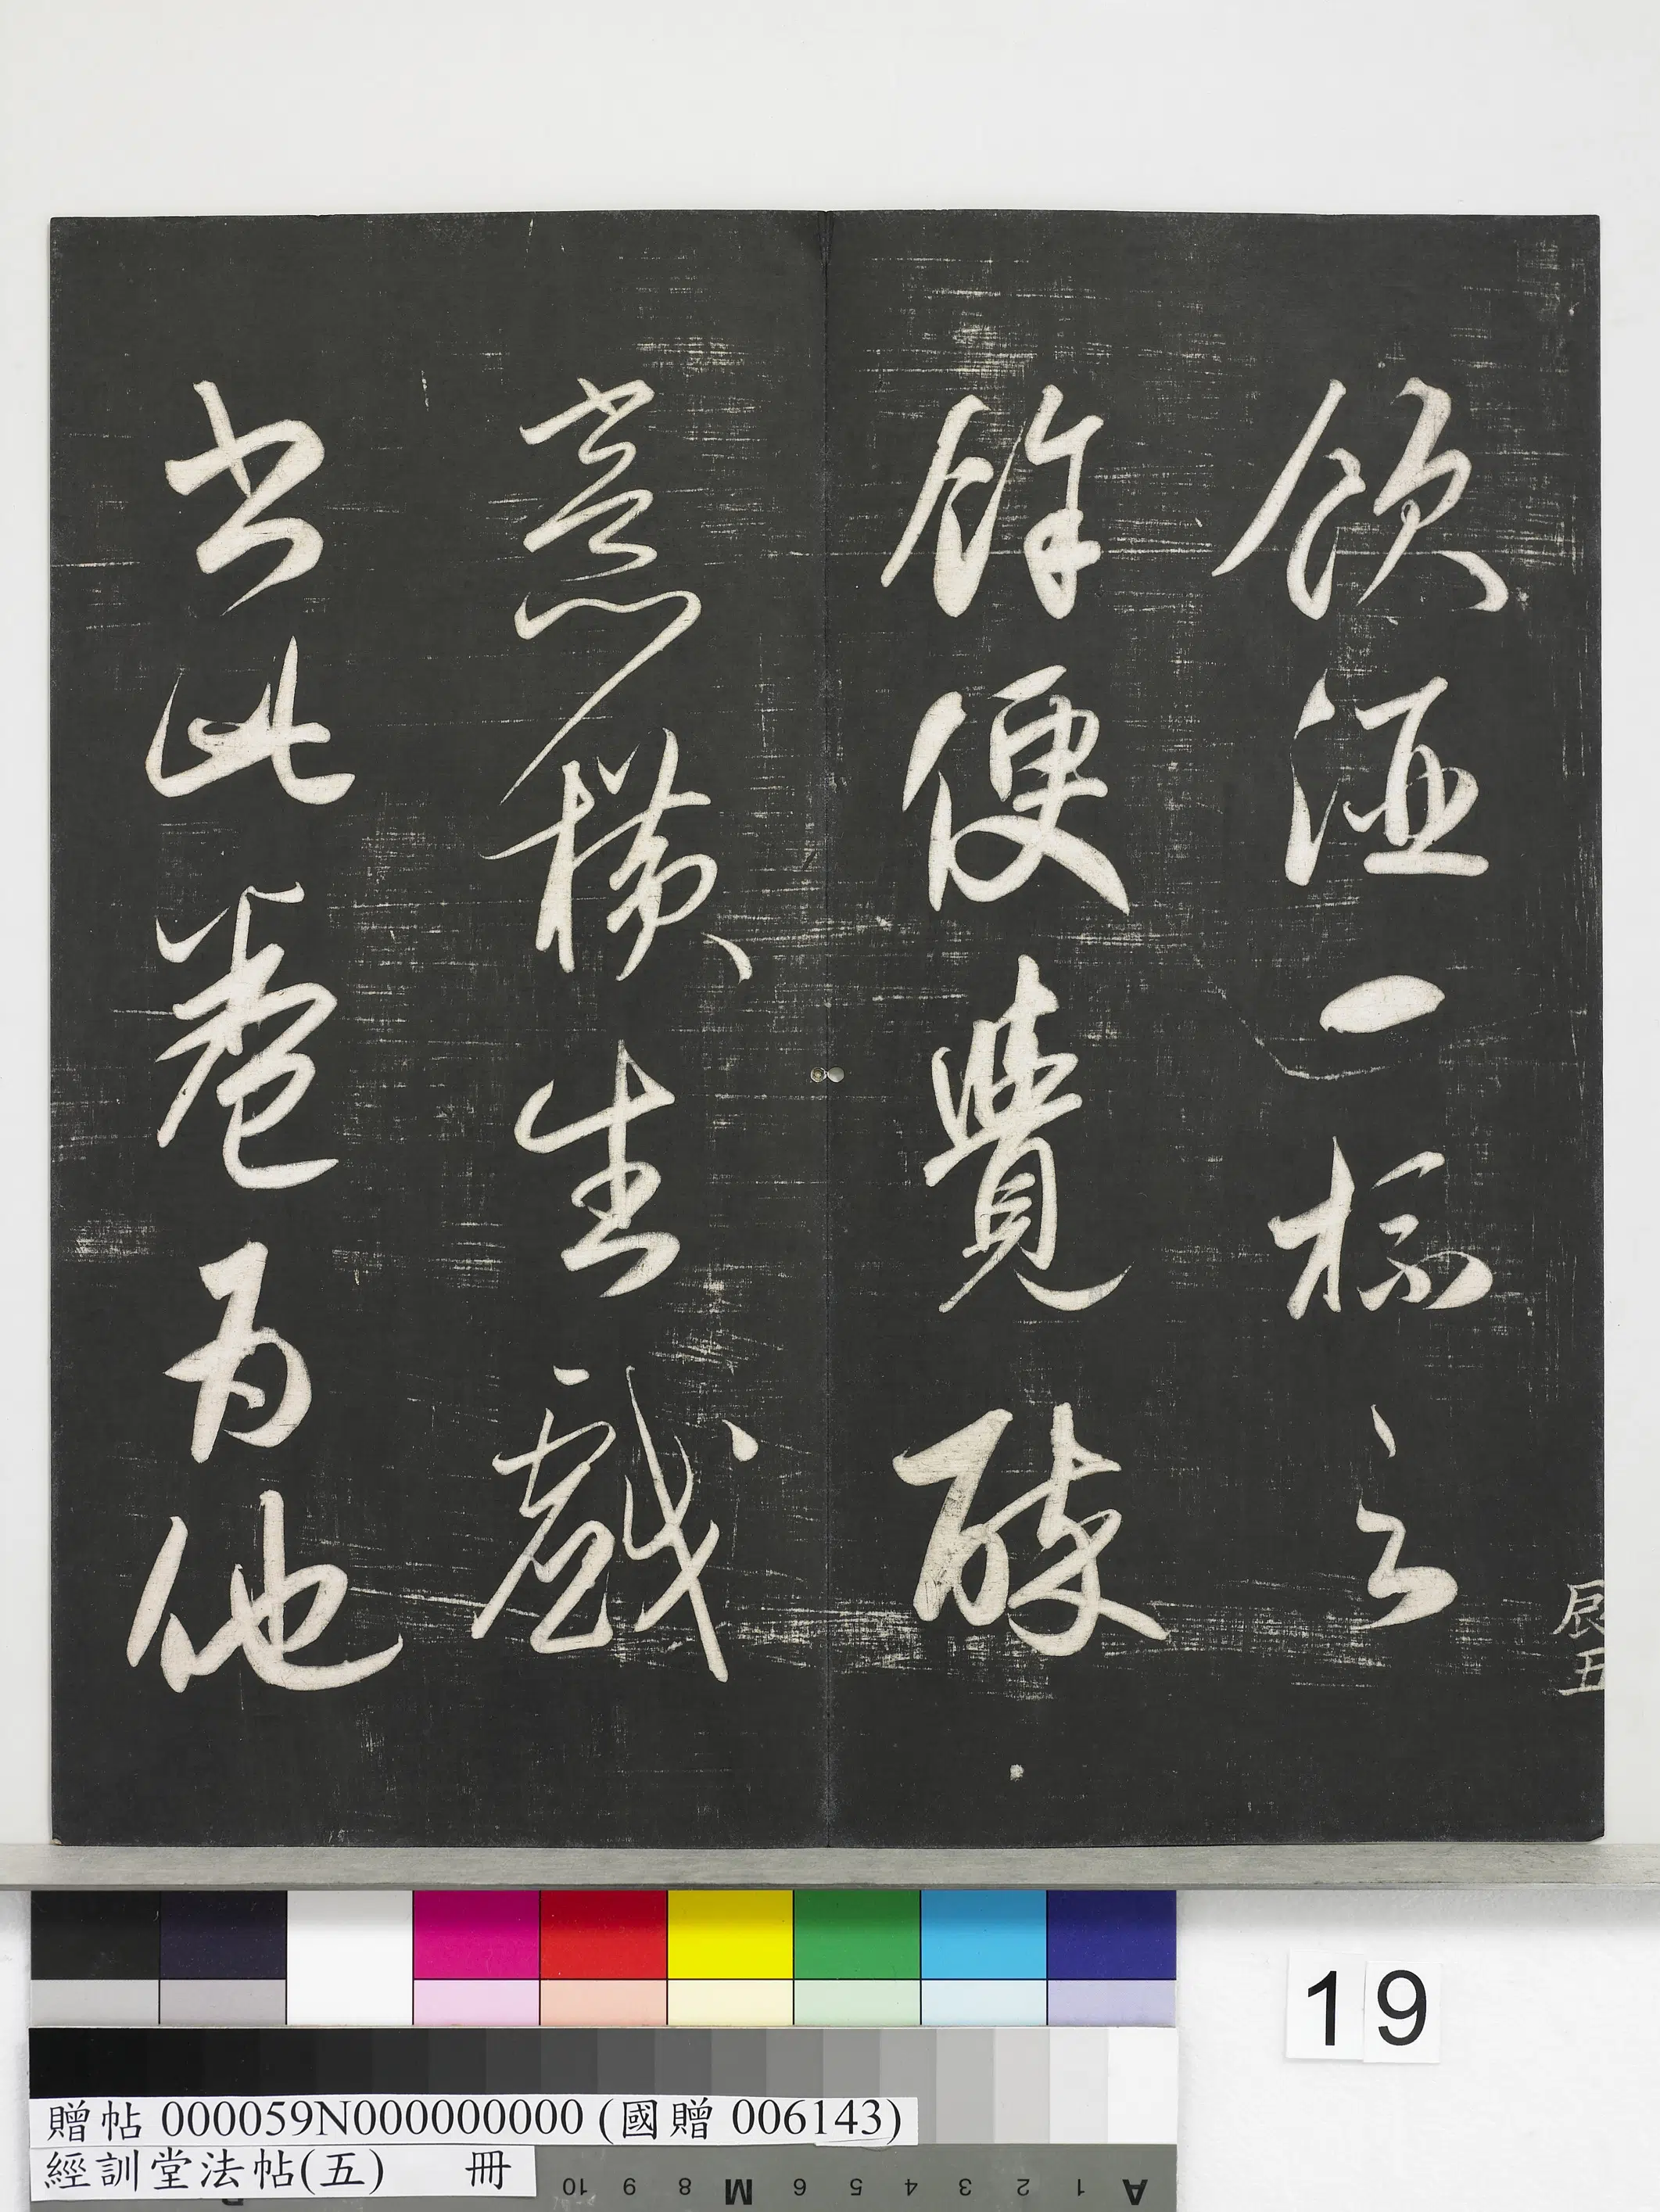 飲酒一杯之
餘便覺醉
意橫生戲
書此卷為他
辰五
19
贈帖 000059N000000000 (國贈 006143)
經訓堂法帖(五) 冊
A 1 2 3 4 5 6 M 8 9 10 B